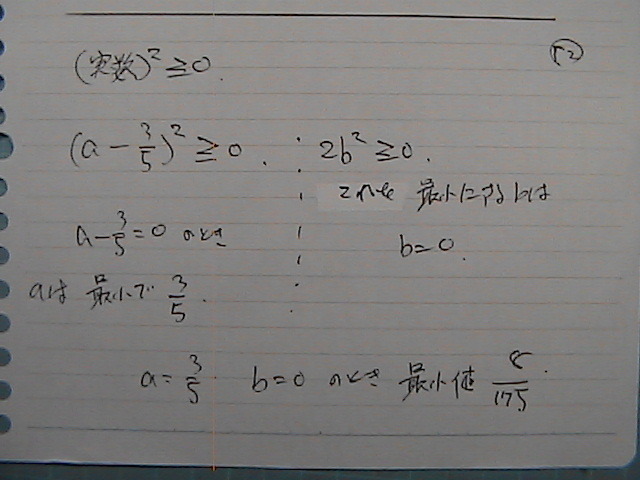 ⑫
(実数)² ≧ 0.
(a - 3/5)² ≧ 0. 2b² ≧ 0.
これを 最小にするbは
a - 3/5 = 0 のとき b = 0.
aは 最小で 3/5.
a = 3/5 b = 0 のとき 最小値 8/175.